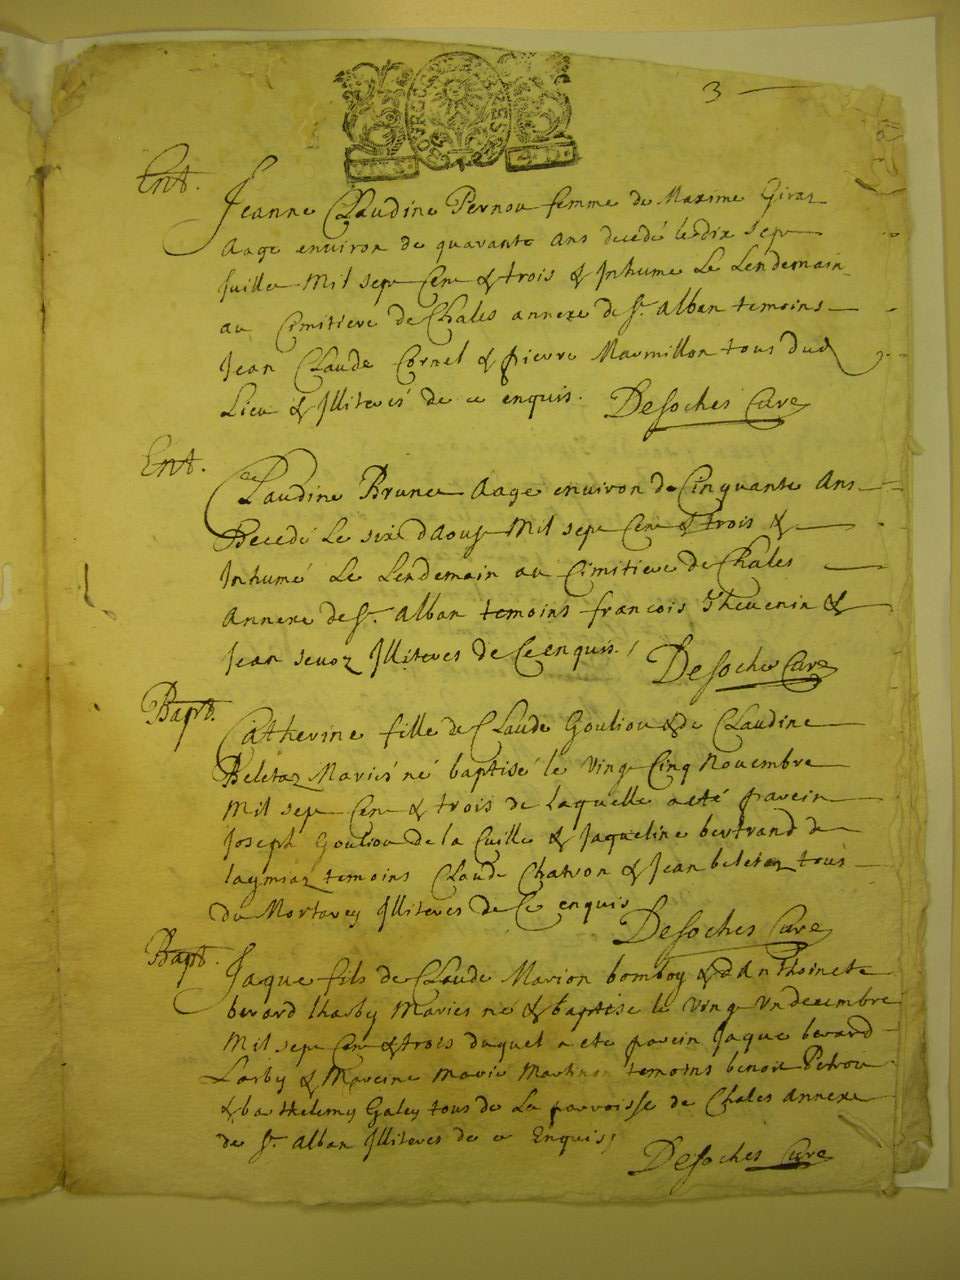 3
BOURG EN BRESSE
Ent.
Jeanne Claudine Pernou femme de Maxime Giraz
Aage environ de quarante Ans decedé le dix sept
Juillet Mil sept Cent & trois & Inhume Le Lendemain
au Cimitiere de Chales annexe de St. Alban temoins
Jean Claude Cornel & pierre Marmillon tous dud
Lieu & Jlliterés de ce enquis. Desoches Curé
Ent.
Claudine Brunet Aage environ de Cinquante Ans
Decedé Le six d'Aoust Mil sept Cent & trois &
Inhumé Le Lendemain au Cimitiere de Chales
Annexe de St. Alban temoins francois Thevenin &
Jean sevoz Jlliteres de Ce enquis. Desoches Curé
Bapt.
Catherine fille de Claude Gouliou & de Claudine
Beletaz Mariés né baptisé le Vingt Cinq Novembre
Mil sept Cent & trois de laquelle a eté parein
Joseph Gouliou de la Cuille & Jaqueline bertrand de
temoins Claude Chatron & Jean beletaz tous
du Mortarey Jlliteres de Ce enquis
Desoches Curé
Bapt.
Jaque fils de Claude Marion bomboy & d'Anthoinete
berard Maries né & baptise le Vingt Un decembre
Mil sept Cent & trois duquel a ete parein Jaque berard
Larby & Mareine Marie Martinon temoins benoit Petrou
& barthelemy Galey tous de La parroisse de Chales Annexe
de St. Alban Jlliteres de ce Enquis,
Desoches Curé